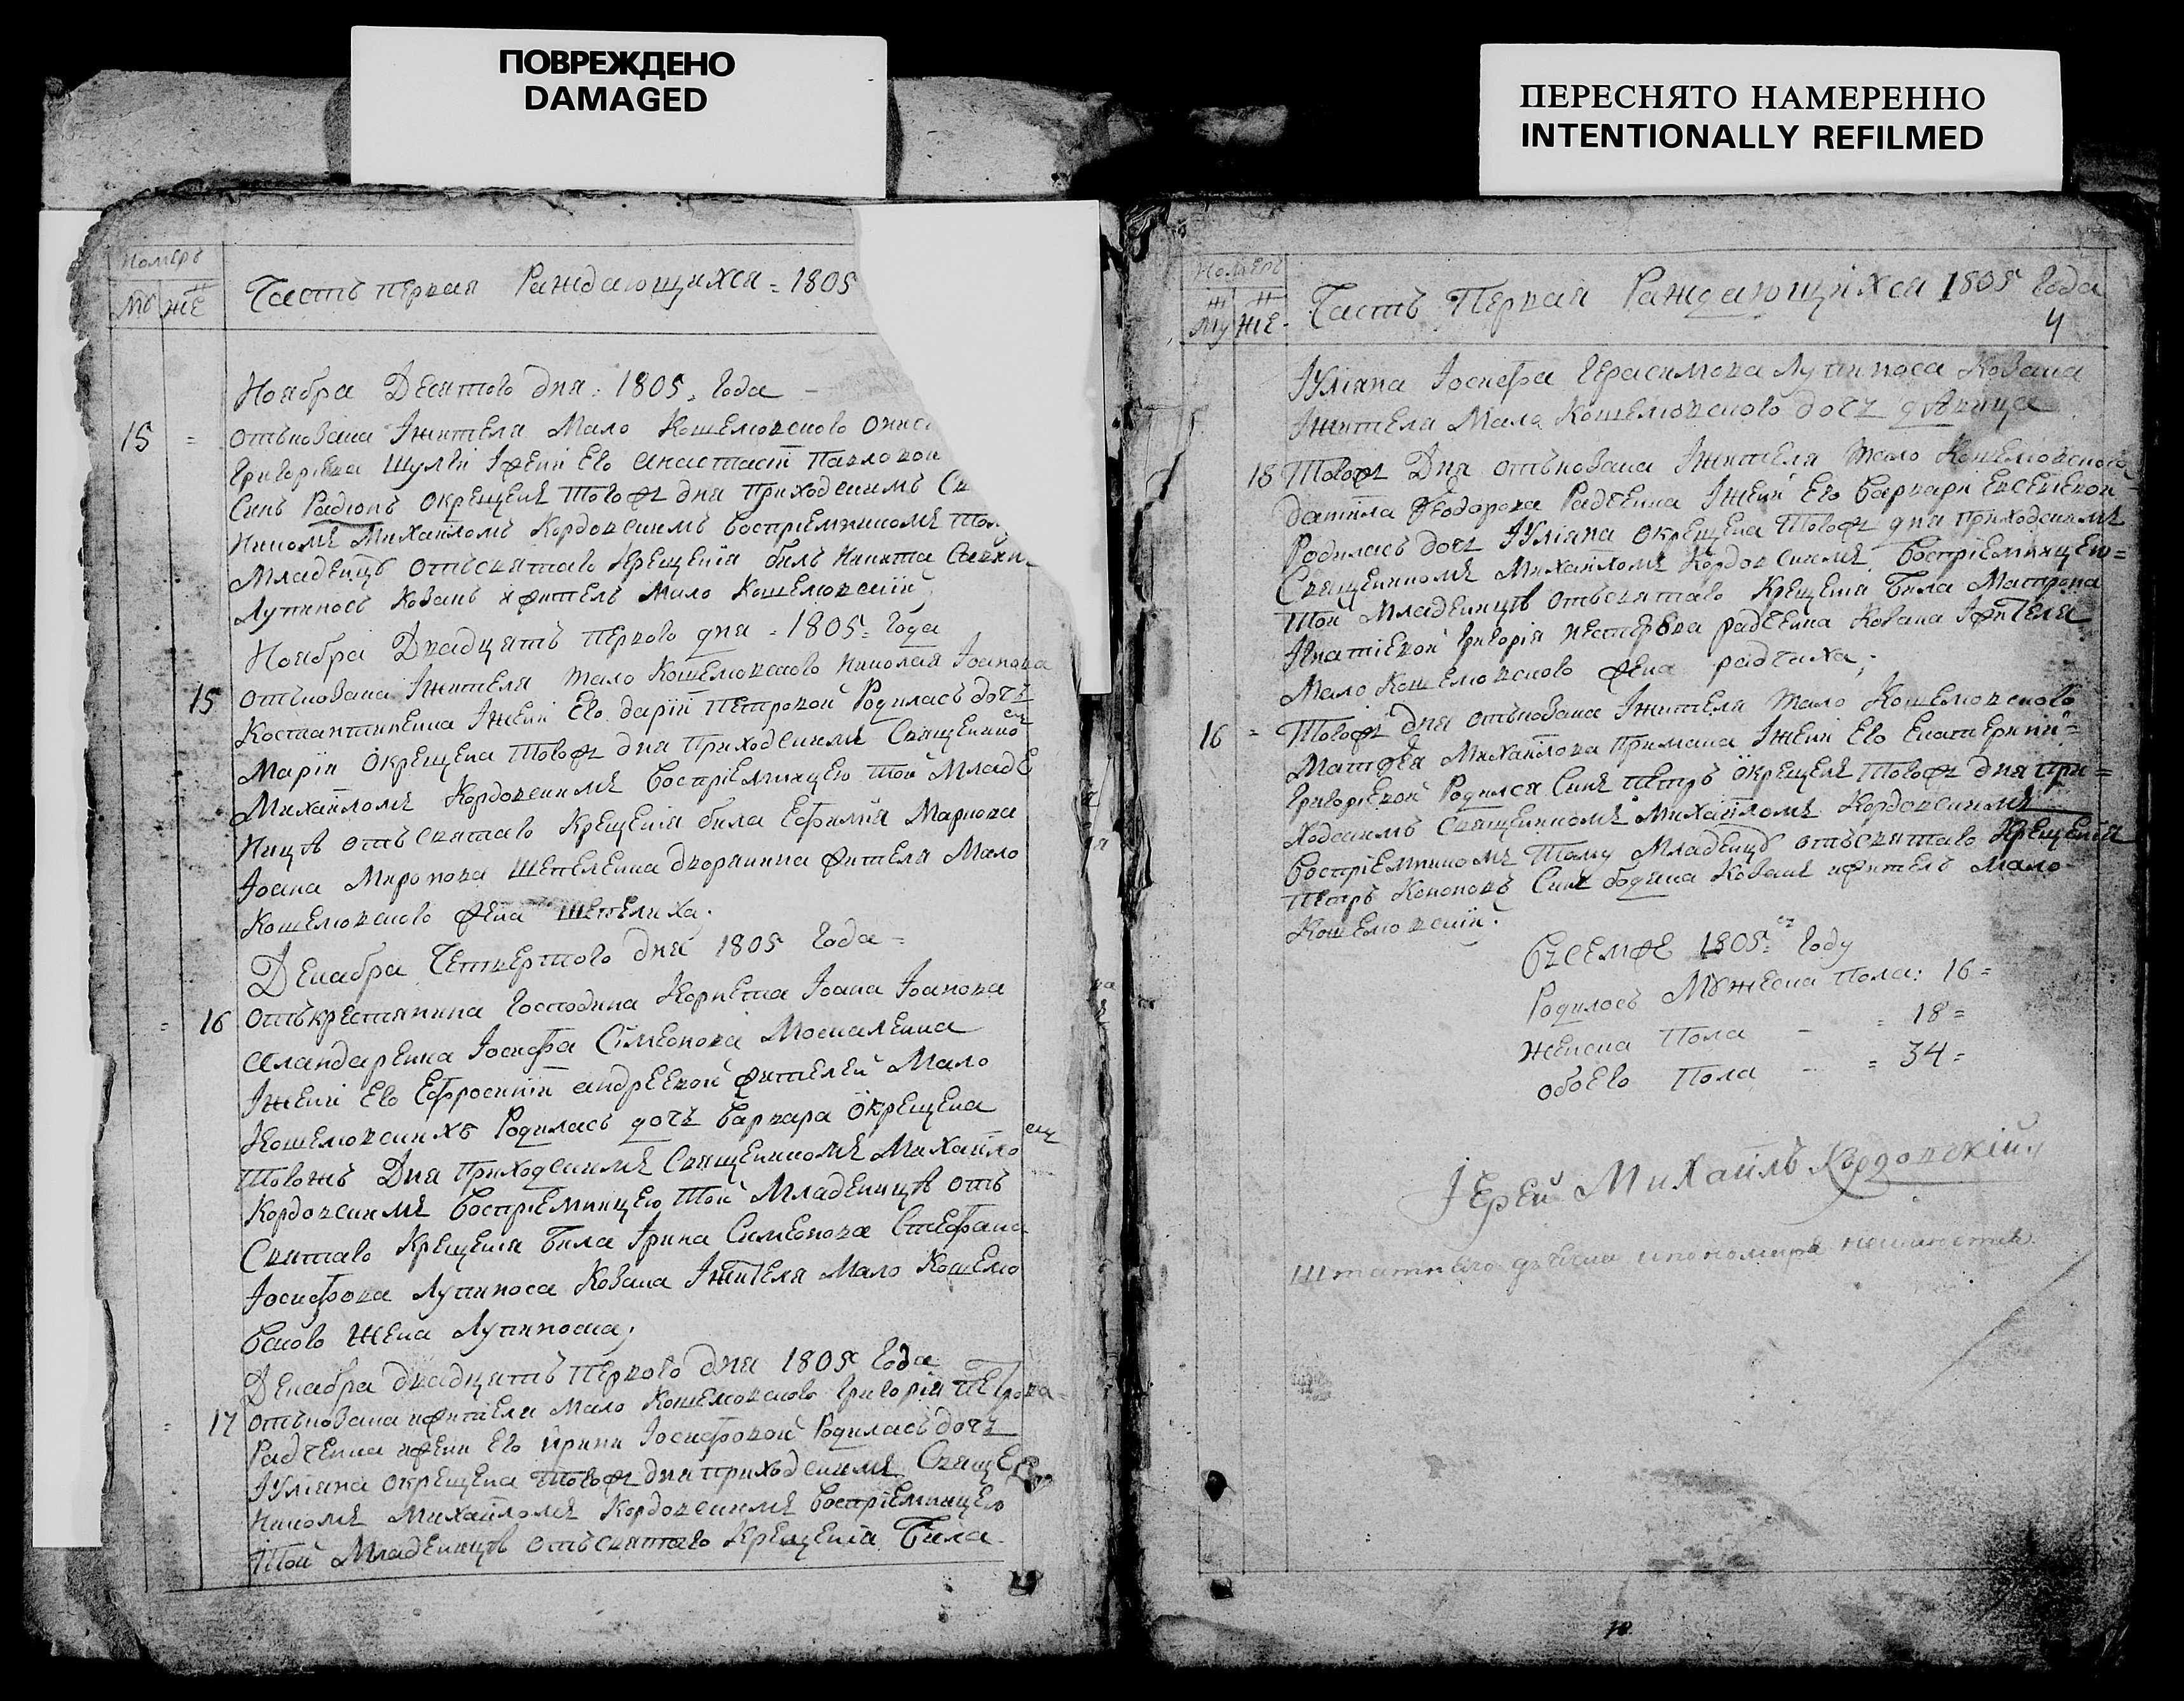 ПОВРЕЖДЕНО
DAMAGED
ПЕРЕСНЯТО НАМЕРЕННО
INTENTIONALLY REFILMED
Номеръ
Мꙋ ЖЕ
Часть первая Раждающихся = 1805
Ноября Десятого дня : 1805 = Года –
15 = отъ козака Iжителя Мало Кошелювского
Григориева Шулги Iжени Его Анастасіи Павловои
Синъ Радіонъ Окрещенъ Тогожъ дня Приходскимъ
никомъ Михаиломъ Кордовскимъ воспріемникомъ
Младенцу отъ святаго Крещенія билъ Никита
Лупиносъ Козакъ жител Мало Кошелювскій
Ноября Двадцять первого дня = 1805 = Года
15 отъ козака Iжителя Мало Кошелювского Николая Іоанова
Костантиненка Iжени Его Даріи Петровой Родилась дочъ
Марія Окрещена Тогожъ дня Приходскимъ Священико
Михаиломъ Кордовскимъ воспріемницею той Младе
ницѣ отъ святаго Крещенія била Ефимія Маркова
Іоана Миронова Шепеленка дворянина жителя Мало
Кошелювского жена Шепелиха.
Декабра Четвертого дня 1805 Года =
= 16 отъ крестянина Господина Корнета Іоана Іоанова
Іосифа Сімеонова Москаленка
Iжени Его Ефросиніи андреевой жителей Мало
Кошелювскихъ Родилась дочъ Варвара Окрещена
Тогожъ Дня приходскимъ Священикомъ Михаило
Кордовскимъ воспріемницею той Младеницѣ отъ
Святаго Крещенія Била Ірина Симеонова Стефана
Іосифова Лупиноса Козака Iжителя Мало Кошелю
вского Жена Лупиноска;
Декабра двадцять первого дня 1805 Года
= 17 отъ козака жителя Мало Кошелювского Григорія Петрова
Радченка жени Его Ирини Іосифовой Родилась дочъ
Іуліана окрещена Тогожъ дня приходскимъ Священ
никомъ Михаиломъ Кордовскимъ воспріемницею
Той Младеницѣ отъ святаго Крещенія Била
Номеръ
Му ЖЕ
Часть Первая Раждающихся 1805 Года
4
Іуліана Іосифа Герасимова Лупиноса Козака
Iжителя Мало Кошелювского дочъ дѣвица
18 Тогожъ Дня отъ козака Iжителя Мало Кошелювского
Даніила Феодорова Радченка Iжени Его Варвари Евсеевой
Родилась дочъ Іуліана окрещена Тогожъ дня приходскимъ
Священикомъ Михаиломъ Кордовскимъ Воспріемницею =
Той Младеницѣ отъ святаго Крещенія Била Матрона
Iгнатіевой Григорія Нестерова радченка Козака Iжителя
Мало Кошелювского жена радчиха;
16 = Тогожъ дня отъ козака Iжителя Мало Кошелювского
Матфея Михайлова Примака Iжени Его Екатерини =
Григоріевой Родился Синъ Петръ Окрещенъ Тогожъ дня при =
ходскимъ Священикомъ Михаиломъ Кордовскимъ
Воспріемникомъ Тому Младенцу отъ святаго Крещенія
Петръ Кононовъ Синъ Козакъ жителъ Мало
Кошелювскій.
Въсемже 1805 = Году
Родилось Мужеска Пола: 16 =
Женска Пола – = 18 =
обоего Пола – = 34 =
Іерей Михаилъ Кордовскій
Штатного дячка и пономаря